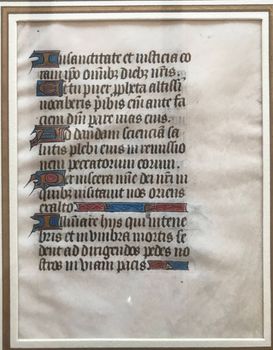 In sanctitate et iusticia co
ram ipo omibz diebz nris.
Et tu puer ppheta altissi
uocaberis preibis eni ante fa
ciem dni pare uias eius.
Ad dandam scienciam sa
lutis plebi eius in remissio
nem peccatorum eorum.
Per uiscera mie dei nri in
quibz uisitauit nos oriens
ex alto
Illuiare hijs qui in tene
bris et in vmbra mortis se
dent ad dirigendos pedes no
stros in uiam pacis